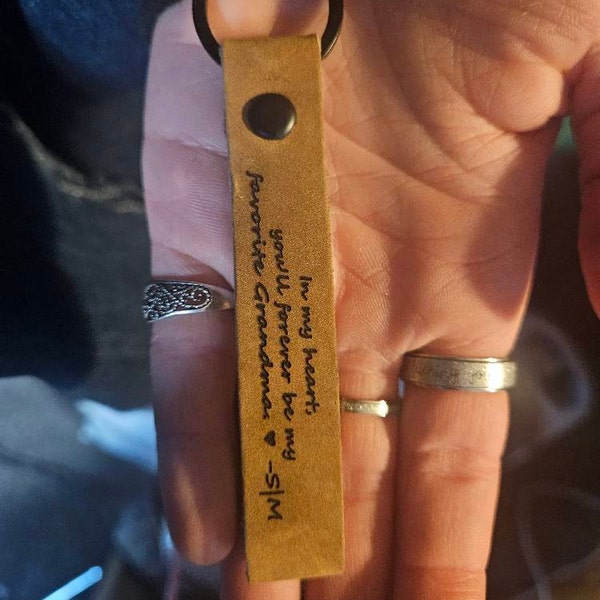 In my heart,
you'll forever be my
favorite Grandma. ♥ -S|M